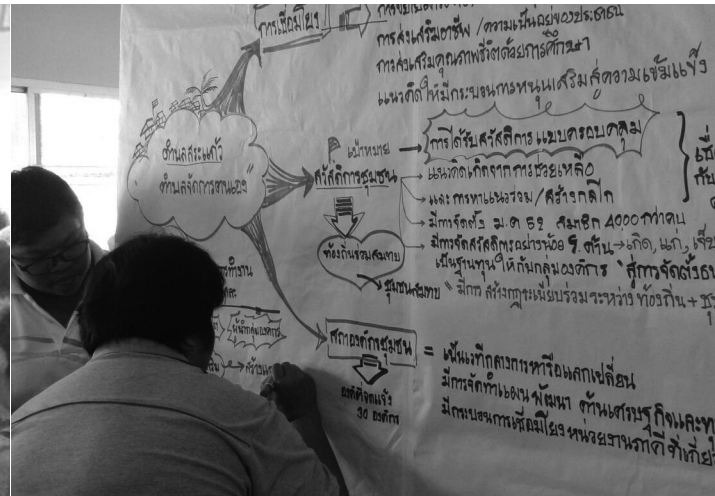 การเชื่อมโยง
การส่งเสริมอาชีพ / ความเป็นอยู่ของประชาชน
การส่งเสริมคุณภาพชีวิตด้วยการศึกษา
แนวคิดให้มีกระบวนการหนุนเสริมสู่ความเข้มแข็ง
ตำบลสระแก้ว
ตำบลจัดการตนเอง"
เป้าหมาย
สวัสดิการชุมชน
การได้รับสวัสดิการแบบครอบคลุม
แนวคิดเกิดจากการช่วยเหลือ
และการหาแนวร่วม / สร้างกลไก
มีการจัดตั้ง ม.ค 52 สมาชิก 4000 กว่าคน
มีการจัดสวัสดิการอย่างน้อย 9 ด้าน → เกิด, แก่,
เป็นฐานทุนให้กับกลุ่มองค์กร "สู่การจัดตั้ง
ท้องถิ่นร่วมสมทบ
ชุมชนสมทบ "มีการสร้างกฎระเบียบร่วมระหว่าง ท้องถิ่น +
สภาองค์กรชุมชน
= เป็นเวทีกลางการหารือแลกเปลี่ยน
มีการจัดทำแผนพัฒนา ด้านเศรษฐกิจและ
มีกระบวนการเชื่อมโยงหน่วยงานภาคี
องค์กรจดแจ้ง
30 องค์กร